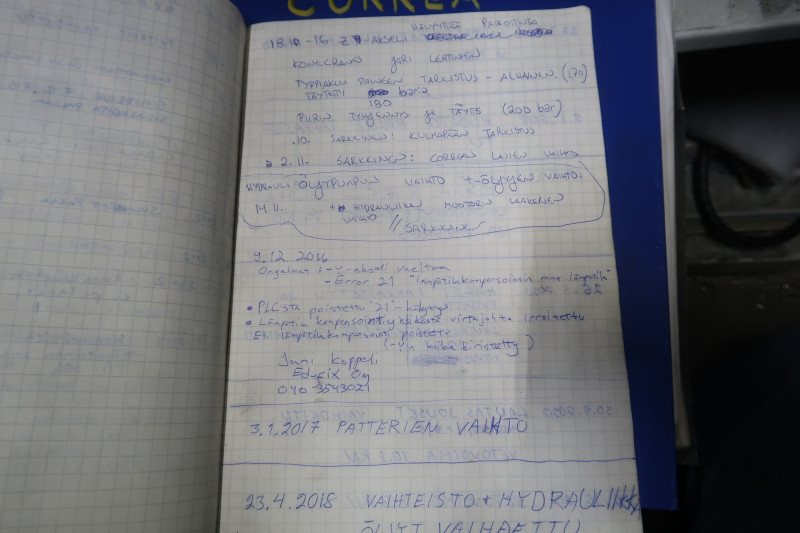 CORREA
HÄLYYTTÄÄ PAIKOITUSTA
18.10-16 Z-AKSELI
KONECRANES JARI LEHTINEN
TYPPIAKUN PAINEEN TARKISTUS - ALUAINEN (170)
TÄYTETTY baria
180
PIIRIN TYHJENNYS JA TÄYTTÖ (200 bar)
.10. SARKKINEN: KULMAPÄÄN TARKISTUS
2.11. SARKKINEN: CORREAN LAJIEN VAIHTO
HYDRAULI ÖLJYPUMPUN VAIHTO + ÖLJYJEN VAIHTO.
14.11. + HYDRAULIIKAN MOOTTORIN LAAKEREIDEN
VAIHTO // SARKKINEN
9.12 2016
Ongelmat: -y-akseli vaelton
-Error 21 "lämpötilakompensoinnin max lämpötila"
• PLC:stä poistettu "21"-hälytys
• Lämpötila kompensointiyksiköstä virtajohto irroitettu
Eli lämpötilakompensointi poistettu
(-Y:n kiila kiristetty)
Jani Koppeli
Ed-fix Oy
040 3543021
3.1.2017 PATTERIEN VAIHTO
23.4.2018 VAIHTEISTO + HYDRAULIIKKA
ÖLJYT VAIHDETTU